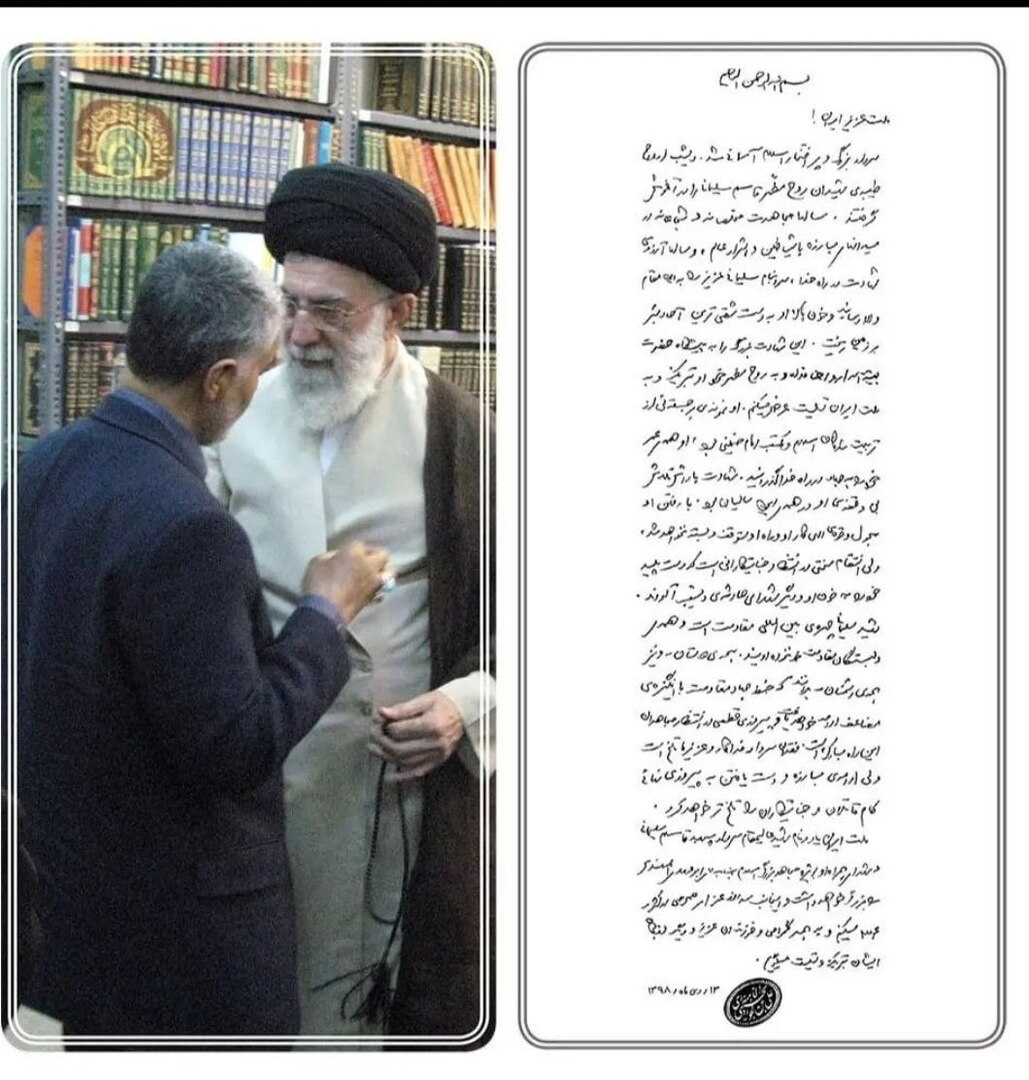 بسم الله الرحمن الرحیم
ملت عزیز ایران!
سردار بزرگ و پرافتخار اسلام آسمانی شد. دیشب ارواح
طیبه‌ی شهیدان روح مطهر قاسم سلیمانی را در آغوش
گرفتند. سالها مجاهدت مخلصانه و شجاعانه در
میدانهای مبارزه با شیاطین و اشرار عالم، و سالها آرزوی
شهادت در راه خدا، سرانجام سلیمانی عزیز را به این مقام
والا رسانید و خون پاک او به دست شقی‌ترین آحاد بشر
بر زمین ریخت. این شهادت بزرگ را به پیشگاه حضرت
بقیةالله ارواحنا فداه و به روح مطهر خود او تبریک و به
ملت ایران تسلیت عرض میکنم. او نمونه‌ی برجسته‌ئی از
تربیت‌شدگان اسلام و مکتب امام خمینی بود، او همه‌ی عمر
خود را به جهاد در راه خدا گذرانید. شهادت پاداش تلاش
بی‌وقفه‌ی او در همه‌ی این سالیان بود. با رفتن او
بحول و قوه‌ی الهی کار او و راه او متوقف و بسته نخواهد شد،
ولی انتقام سختی در انتظار جنایتکارانی است که دست پلید
خود را به خون او و دیگر شهدای حادثه‌ی دیشب آلودند.
شهید سلیمانی چهره‌ی بین‌المللی مقاومت است و همه‌ی
دلبستگان مقاومت خونخواه اویند. همه‌ی دوستان - و نیز
همه‌ی دشمنان - بدانند که خط جهاد مقاومت با انگیزه‌ی
مضاعف ادامه خواهد یافت و پیروزی قطعی در انتظار مجاهدان
این راه مبارک است. فقدان سردار فداکار و عزیز ما تلخ است
ولی ادامه‌ی مبارزه و دست یافتن به پیروزی نهائی
کام قاتلان و جنایتکاران را تلخ‌تر خواهد کرد.
ملت ایران یاد و نام شهید عالیمقام سردار سپهبد قاسم سلیمانی
و شهدای همراه او بویژه مجاهد بزرگ اسلام جناب ابومهدی المهندس
را بزرگ خواهد داشت و اینجانب سه روز عزای عمومی در کشور
اعلام میکنم و به همسر گرامی و فرزندان عزیز و دیگر بستگان
ایشان تبریک و تسلیت میگویم.
۱۳ دی ماه ۱۳۹۸